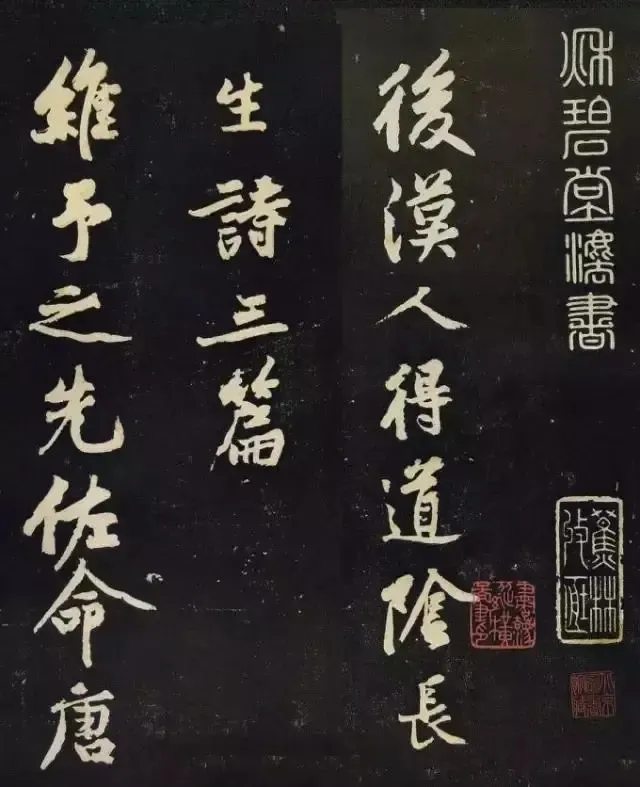 秋碧堂灋書
後漢人得道陰長
生詩三篇
維予之先佐命唐